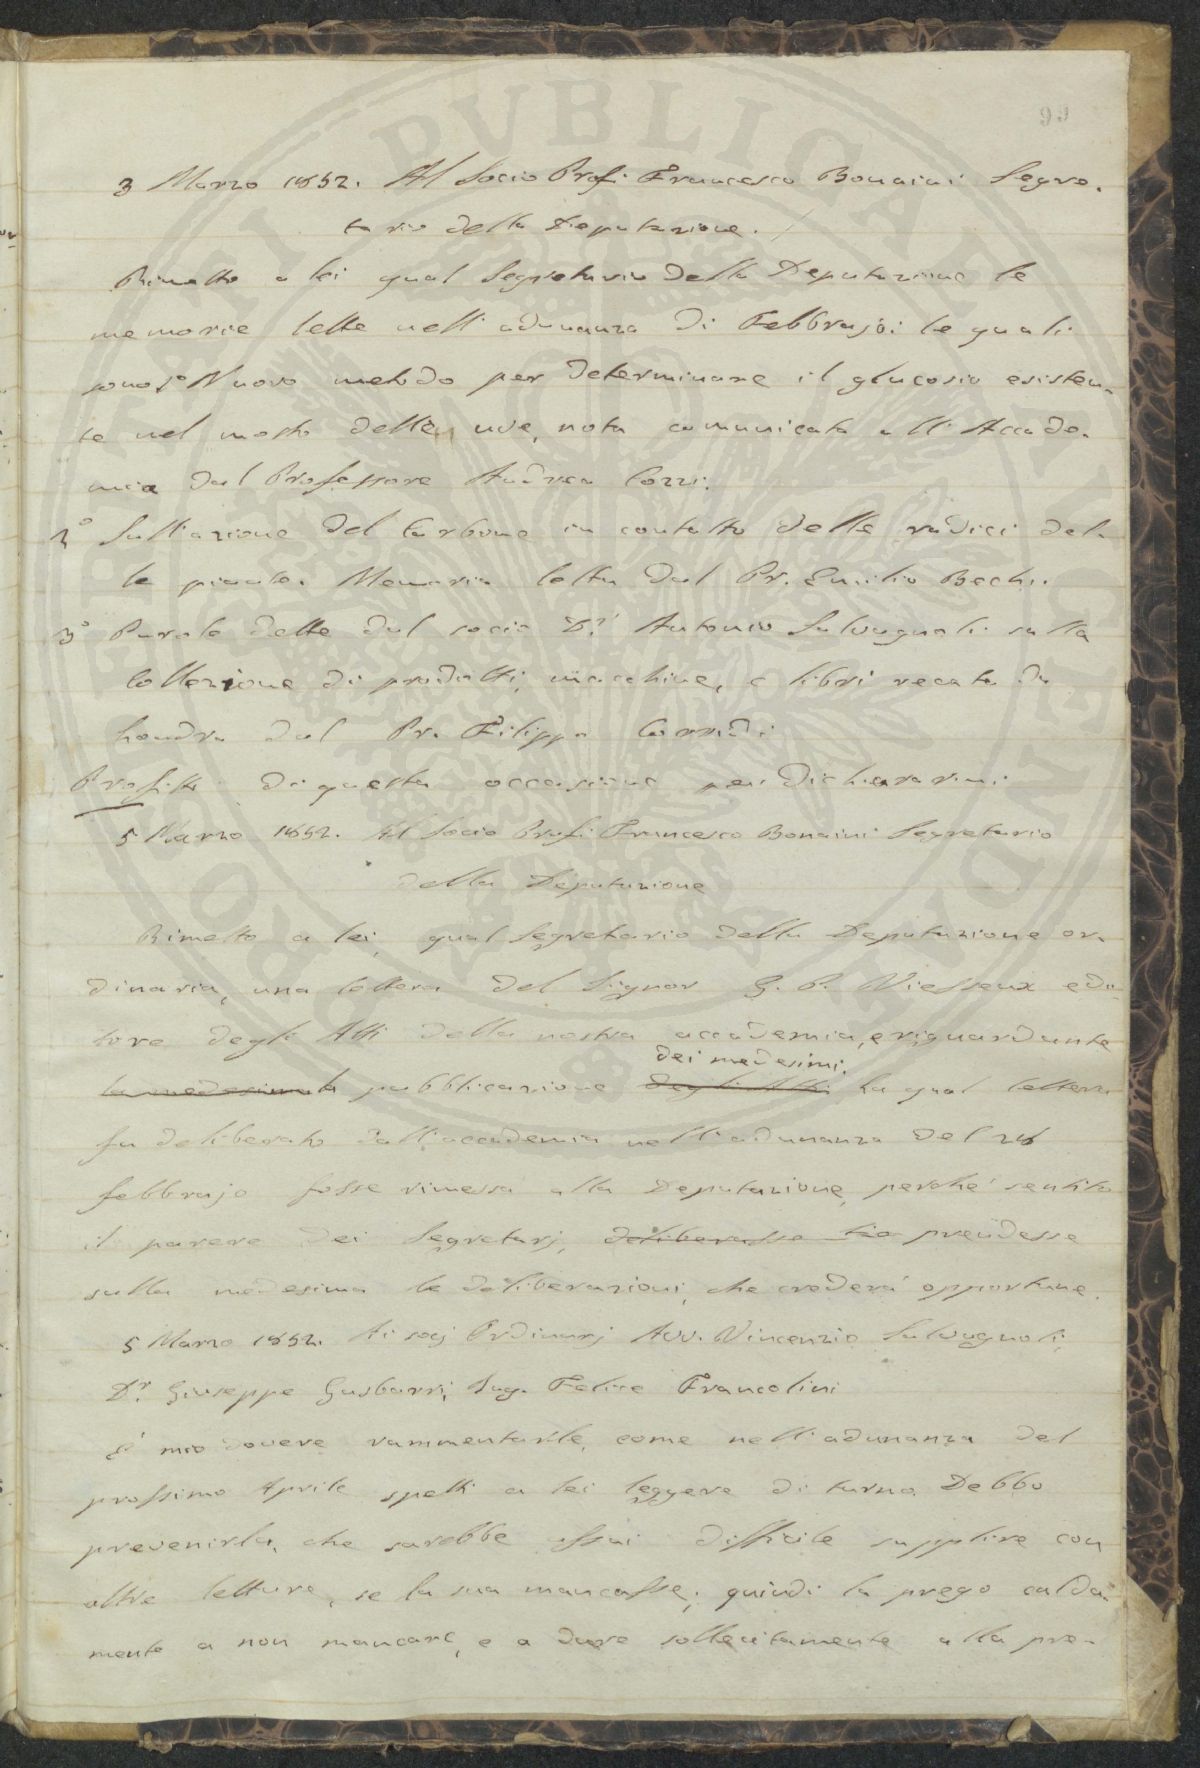 99
3 Marzo 1852. Al Socio Prof: Francesco Bonaini Segre-
tario della Deputazione.
Rimetto a lei qual Segretario della Deputazione le
memorie lette nell'adunanza di Febbrajo: le quali
sono 1º Nuovo metodo per determinare il glucosio esisten-
te nel mosto delle uve, nota comunicata all'Accade-
mia dal Professore Andrea Cozzi.
2º Sull'azione del Carbone in contatto delle radici del-
le piante. Memoria letta dal Pr. Emilio Bechi.
3º Parole dette dal socio Dr. Antonio Salvagnoli sulla
Collezione di prodotti, macchine, e libri recata da
Londra dal Pr. Filippo Corridi
Profitto di questa occasione per dichiararmi
5 Marzo 1852. Al Socio Prof: Francesco Bonaini Segretario
della Deputazione
Rimetto a lei, qual Segretario della Deputazione or-
dinaria, una lettera del Signor G. P. Viesseux edi-
tore degli Atti della nostra accademia, e riguardante
dei medesimi.
la medesima la pubblicazione degli Atti. La qual lettera
fu deliberato dall'accademia nell'adunanza del 28
febbrajo fosse rimessa alla Deputazione, perchè sentito
il parere dei Segretarj, deliberasse prendesse
sulla medesima le deliberazioni, che crederà opportune.
5 Marzo 1852. Ai socj Ordinarj Avv. Vincenzio Salvagnoli,
Dr. Giuseppe Gasbarri, Ing. Felice Francolini
È mio dovere rammentarle, come nell'adunanza del
prossimo Aprile spetti a lei leggere di turno. Debbo
prevenirla, che sarebbe assai difficile supplire con
altre letture, se la sua mancasse; quindi la prego calda-
mente a non mancare, e a dare sollecitamente alla pre-
PUBLICAE